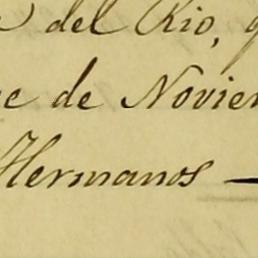 del Rio,
de Novien
Hermanos